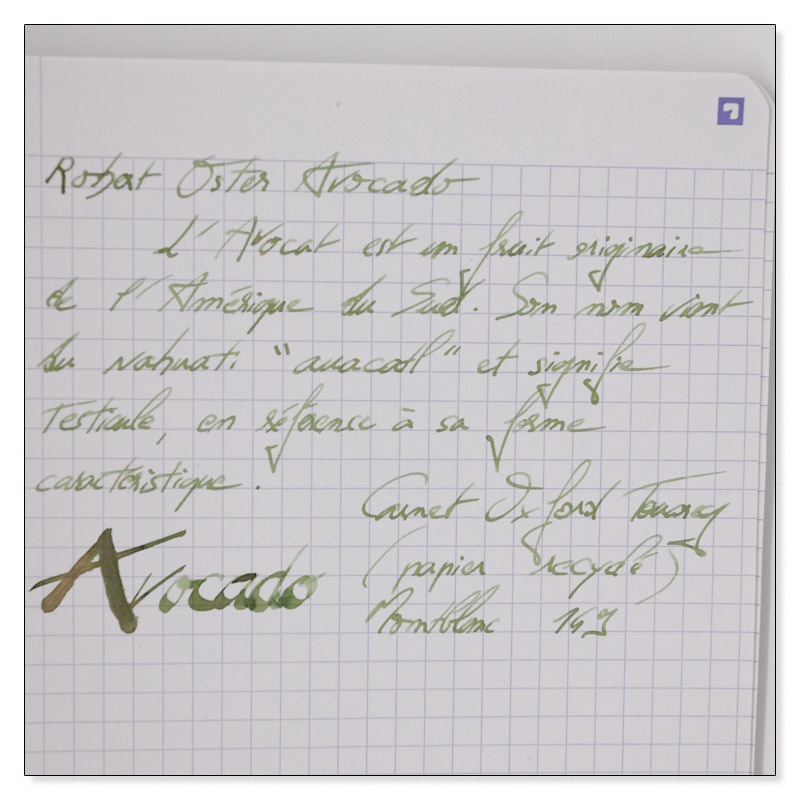 Robert Oster Avocado
L'Avocat est un fruit originaire
de l'Amérique du Sud. Son nom vient
du Nahuatl "auacatl" et signifie
Testicule, en référence à sa forme
caractéristique.
Carnet Oxford Touareg
(papier recyclé)
Montblanc 149
Avocado